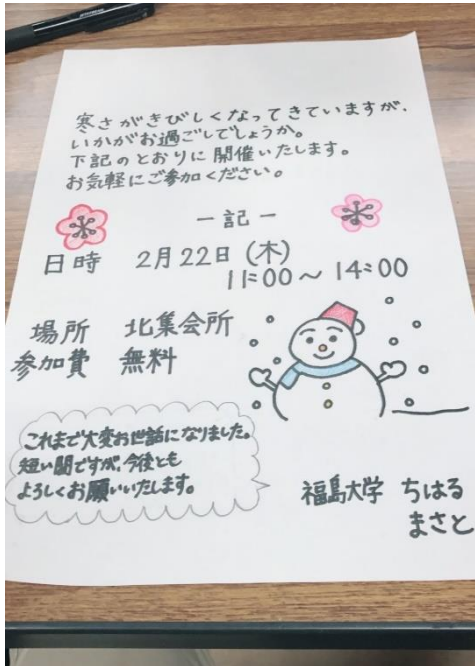 寒さがきびしくなってきていますが、
いかがお過ごしでしょうか。
下記のとおりに開催いたします。
お気軽にご参加ください。
－記－
日時 2月22日(木)
11:00～14:00
場所 北集会所
参加費 無料
これまで大変お世話になりました。
短い間ですが、今後とも
よろしくお願いいたします。
福島大学 ちはる
まさと